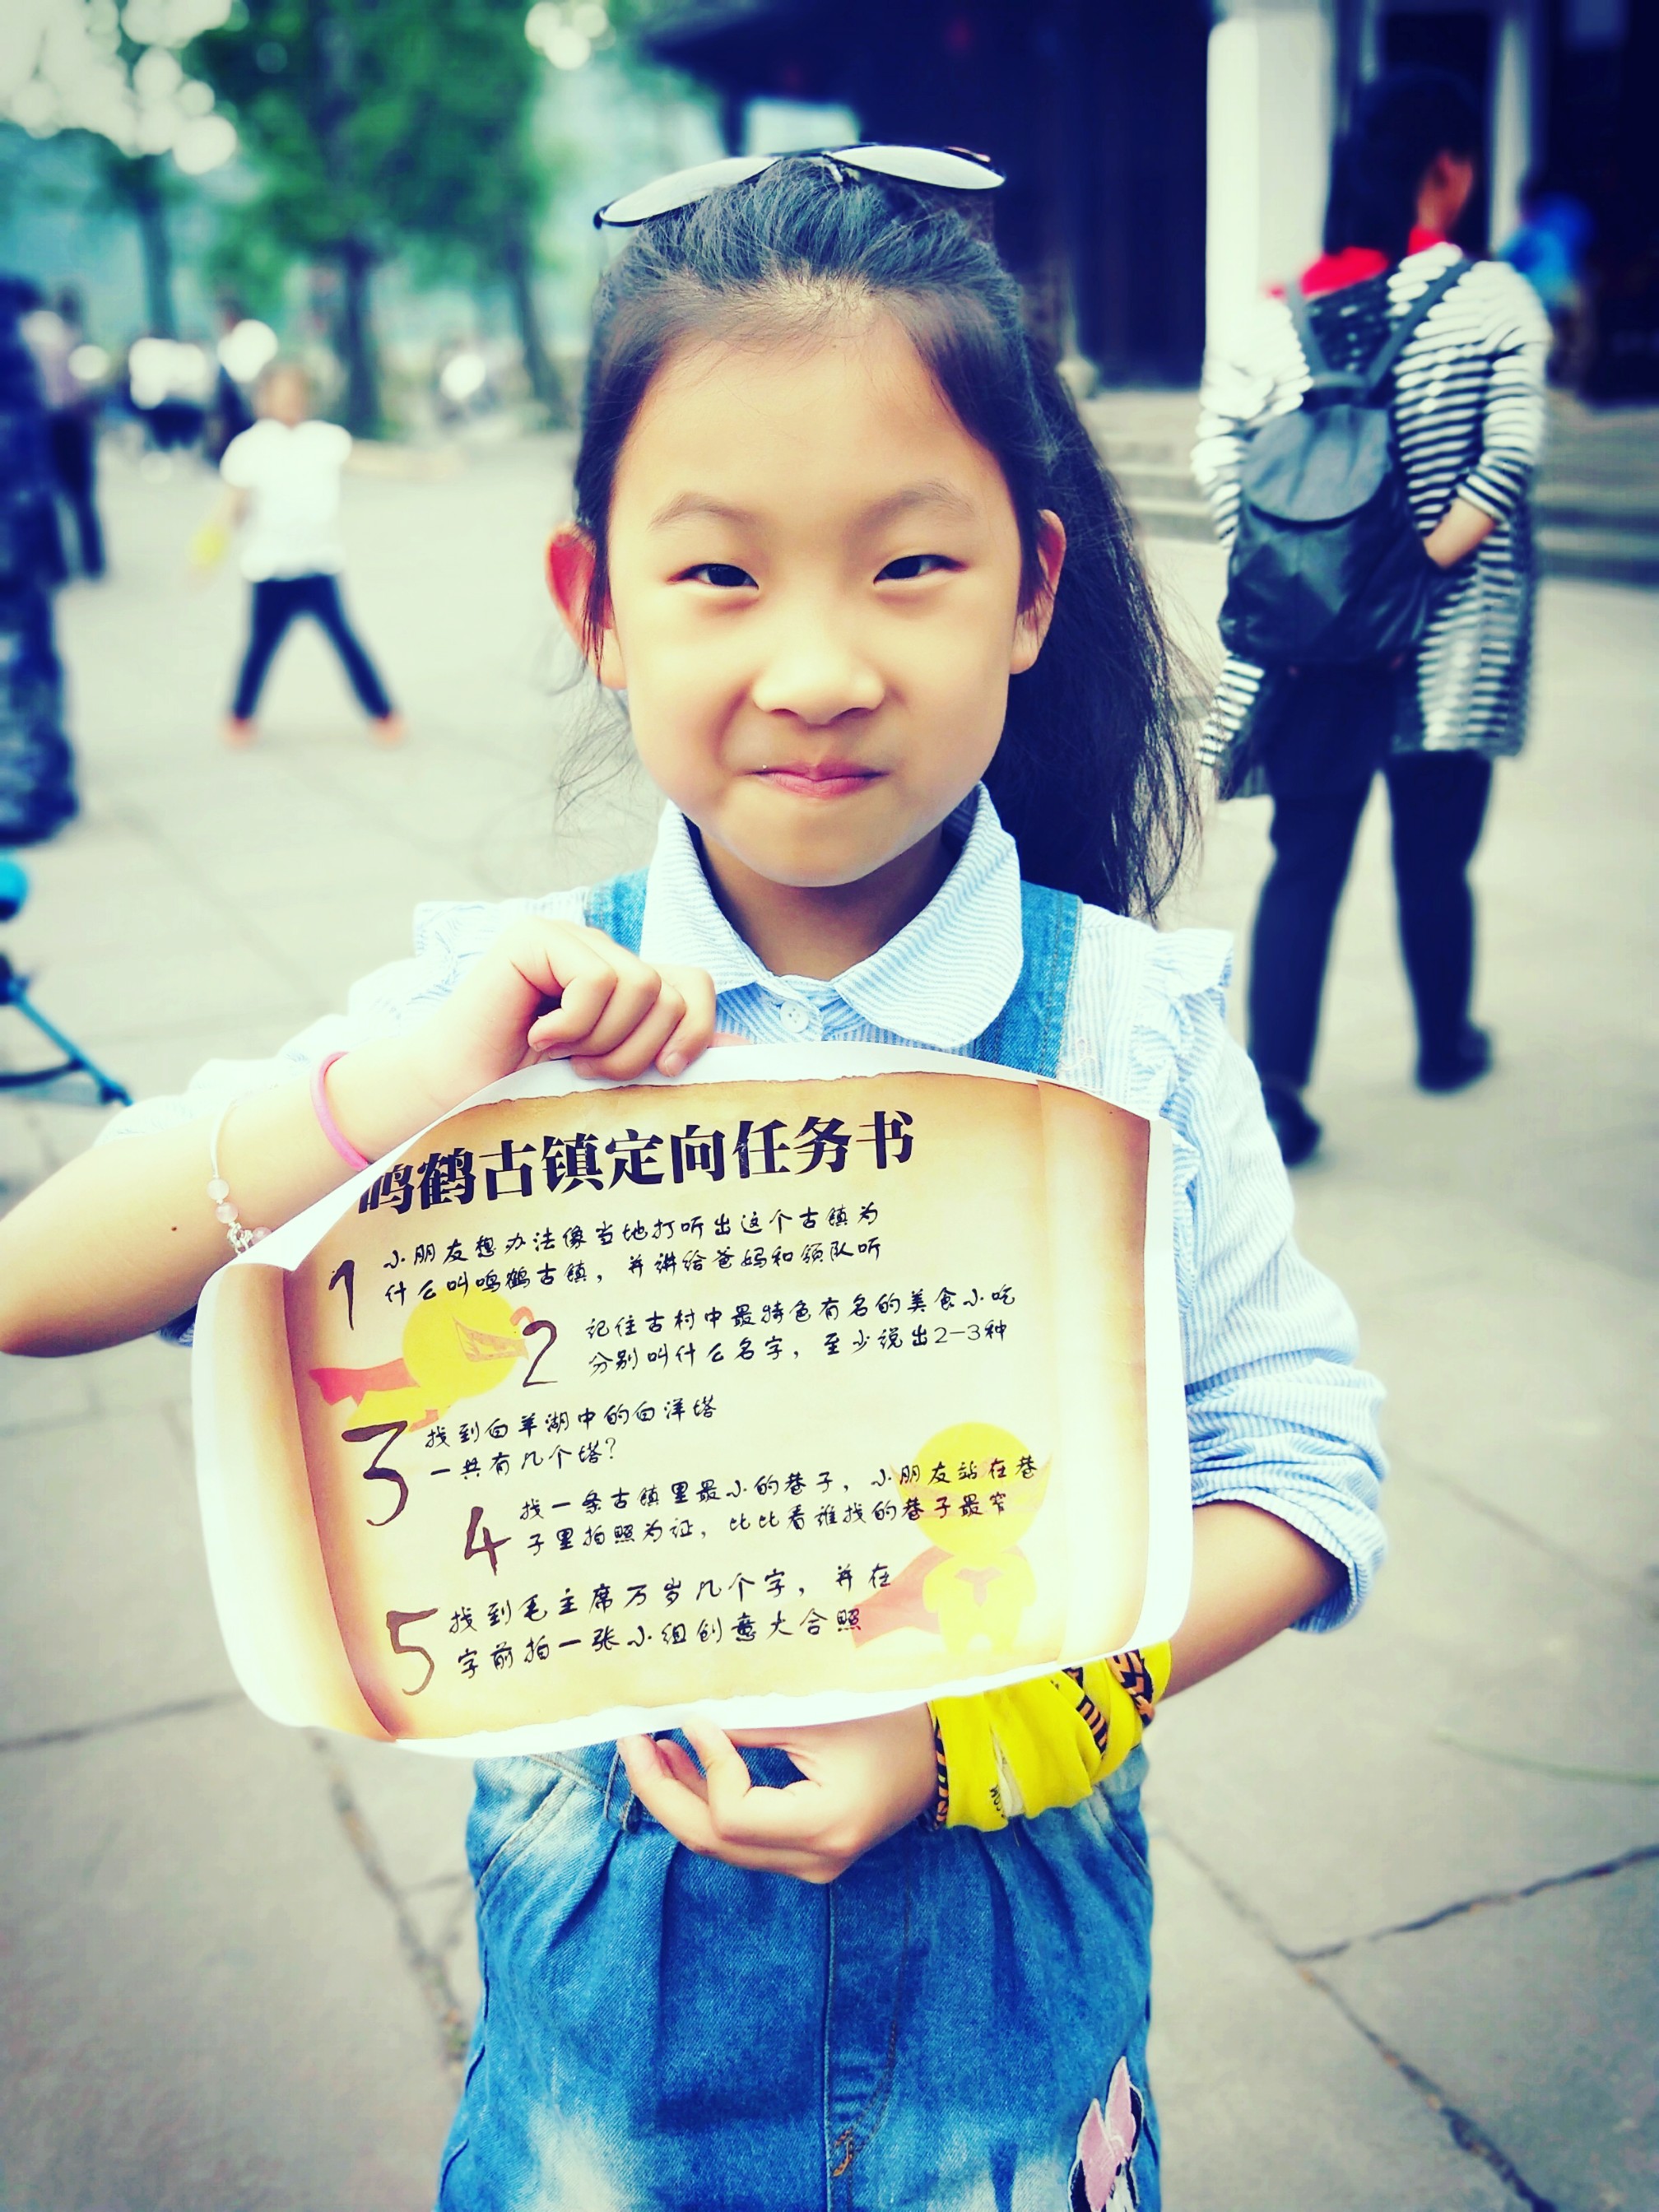 鸣鹤古镇定向任务书
1 小朋友想办法像当地打听出这个古镇为
什么叫鸣鹤古镇，并讲给爸妈和领队听
2 记住古村中最特色有名的美食小吃
分别叫什么名字，至少说出2-3种
3 找到白羊湖中的白洋塔
一共有几个塔？
4 找一条古镇里最小的巷子，小朋友站在巷
子里拍照为证，比比看谁找的巷子最窄
5 找到毛主席万岁几个字，并在
字前拍一张小组创意大合照